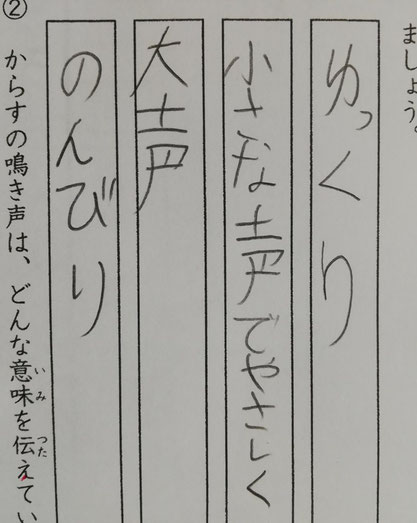 ましょう。
ゆっくり
小さな声でやさしく
大声
のんびり
② からすの鳴き声は、どんな意味を伝えてい
いみ
つた